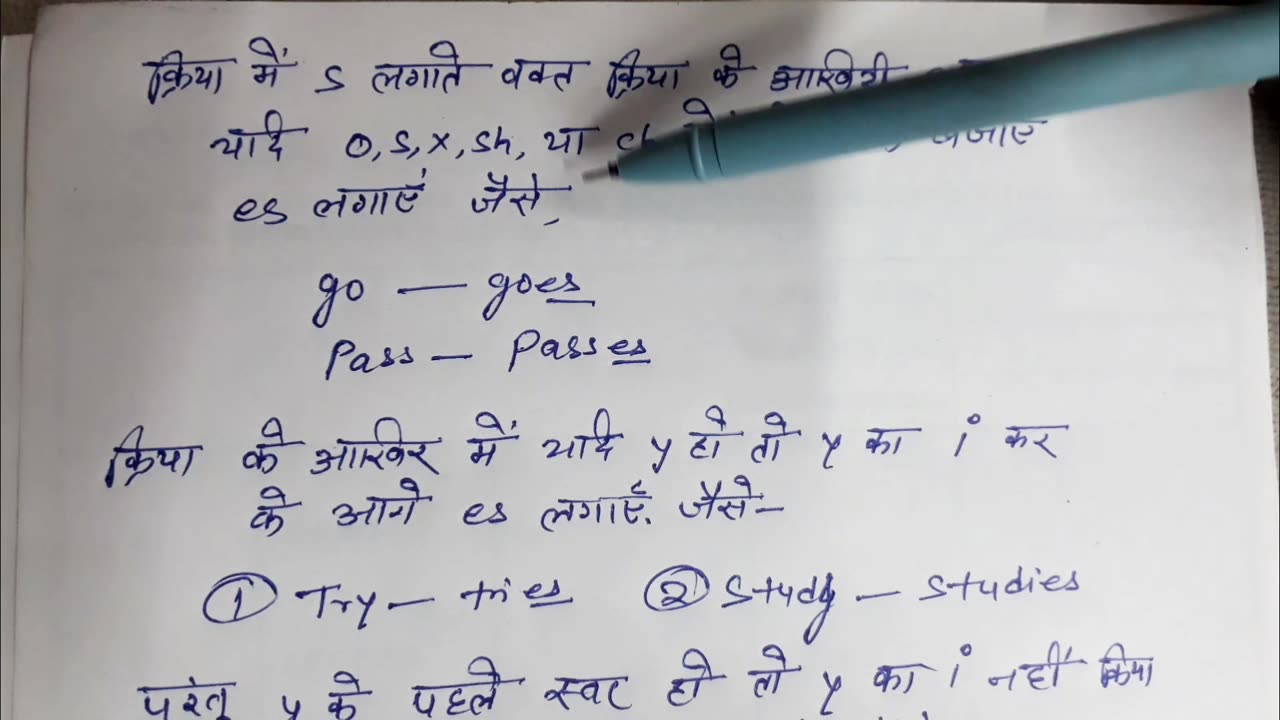 क्रिया में s लगाते वक्त क्रिया के आखिरी
यदि o, s, x, sh, या ch बजाए
es लगाएं जैसे,
go — goes
Pass — Passes
क्रिया के आखिर में यदि y हो तो y का i कर
के आगे es लगाएँ. जैसे–
① Try – tries ② Study – Studies
परंतु y के पहले स्वर हो तो y का i नहीं किया